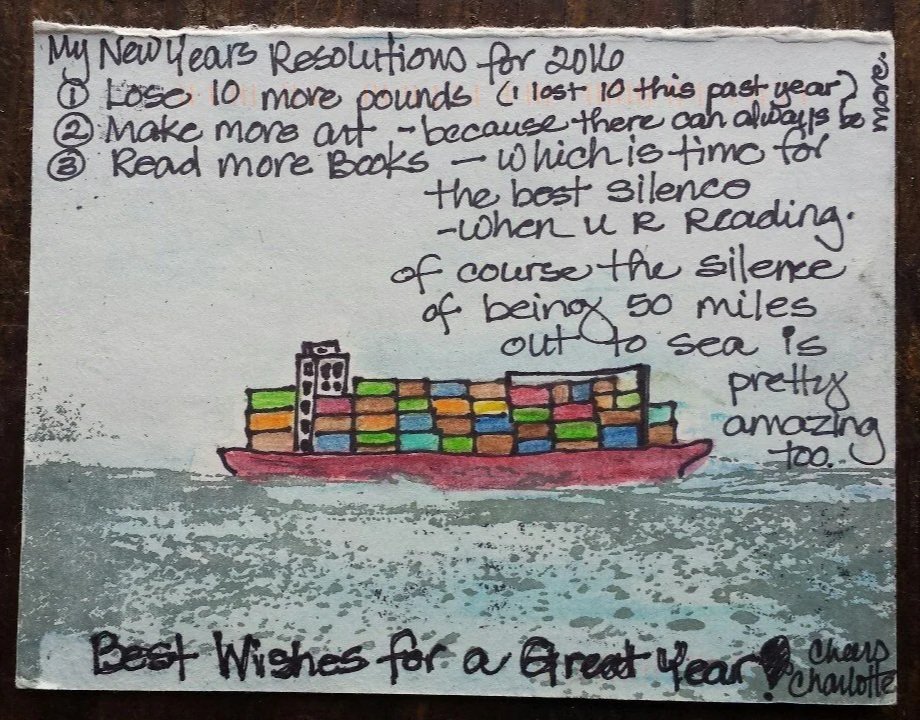 My New Years Resolutions for 2016
① Lose 10 more pounds (I lost 10 this past year)
② Make more art - because there can always be more.
③ Read more Books - which is time for
the best silence
- when U R Reading.
of course the silence
of being 50 miles
out to sea is
pretty
amazing
too.
Best Wishes for a Great Year!
Cheers
Charlotte